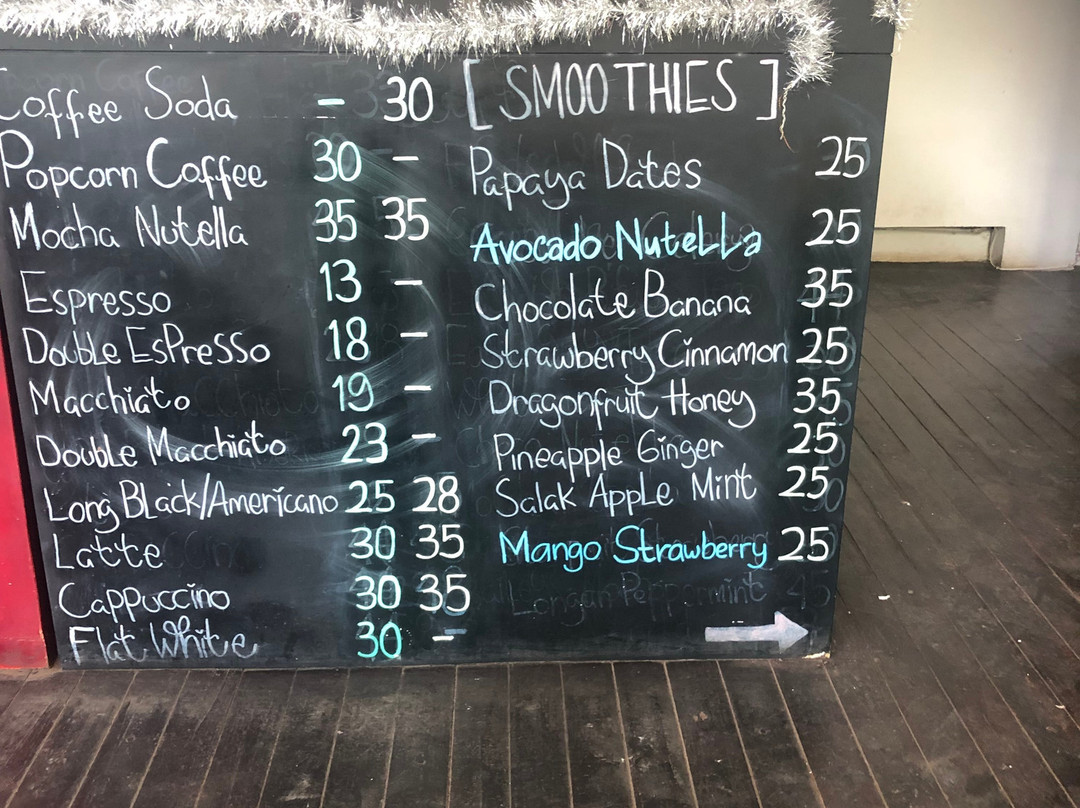 Coffee Soda - 30
Popcorn Coffee 30 -
Mocha Nutella 35 35
Espresso 13 -
Double Espresso 18 -
Macchiato 19 -
Double Macchiato 23 -
Long Black/Americano 25 28
Latte 30 35
Cappuccino 30 35
Flat White 30 -
[SMOOTHIES]
Papaya Dates 25
Avocado Nutella 25
Chocolate Banana 35
Strawberry Cinnamon 25
Dragonfruit Honey 35
Pineapple Ginger 25
Salak Apple Mint 25
Mango Strawberry 25
Longan Peppermint